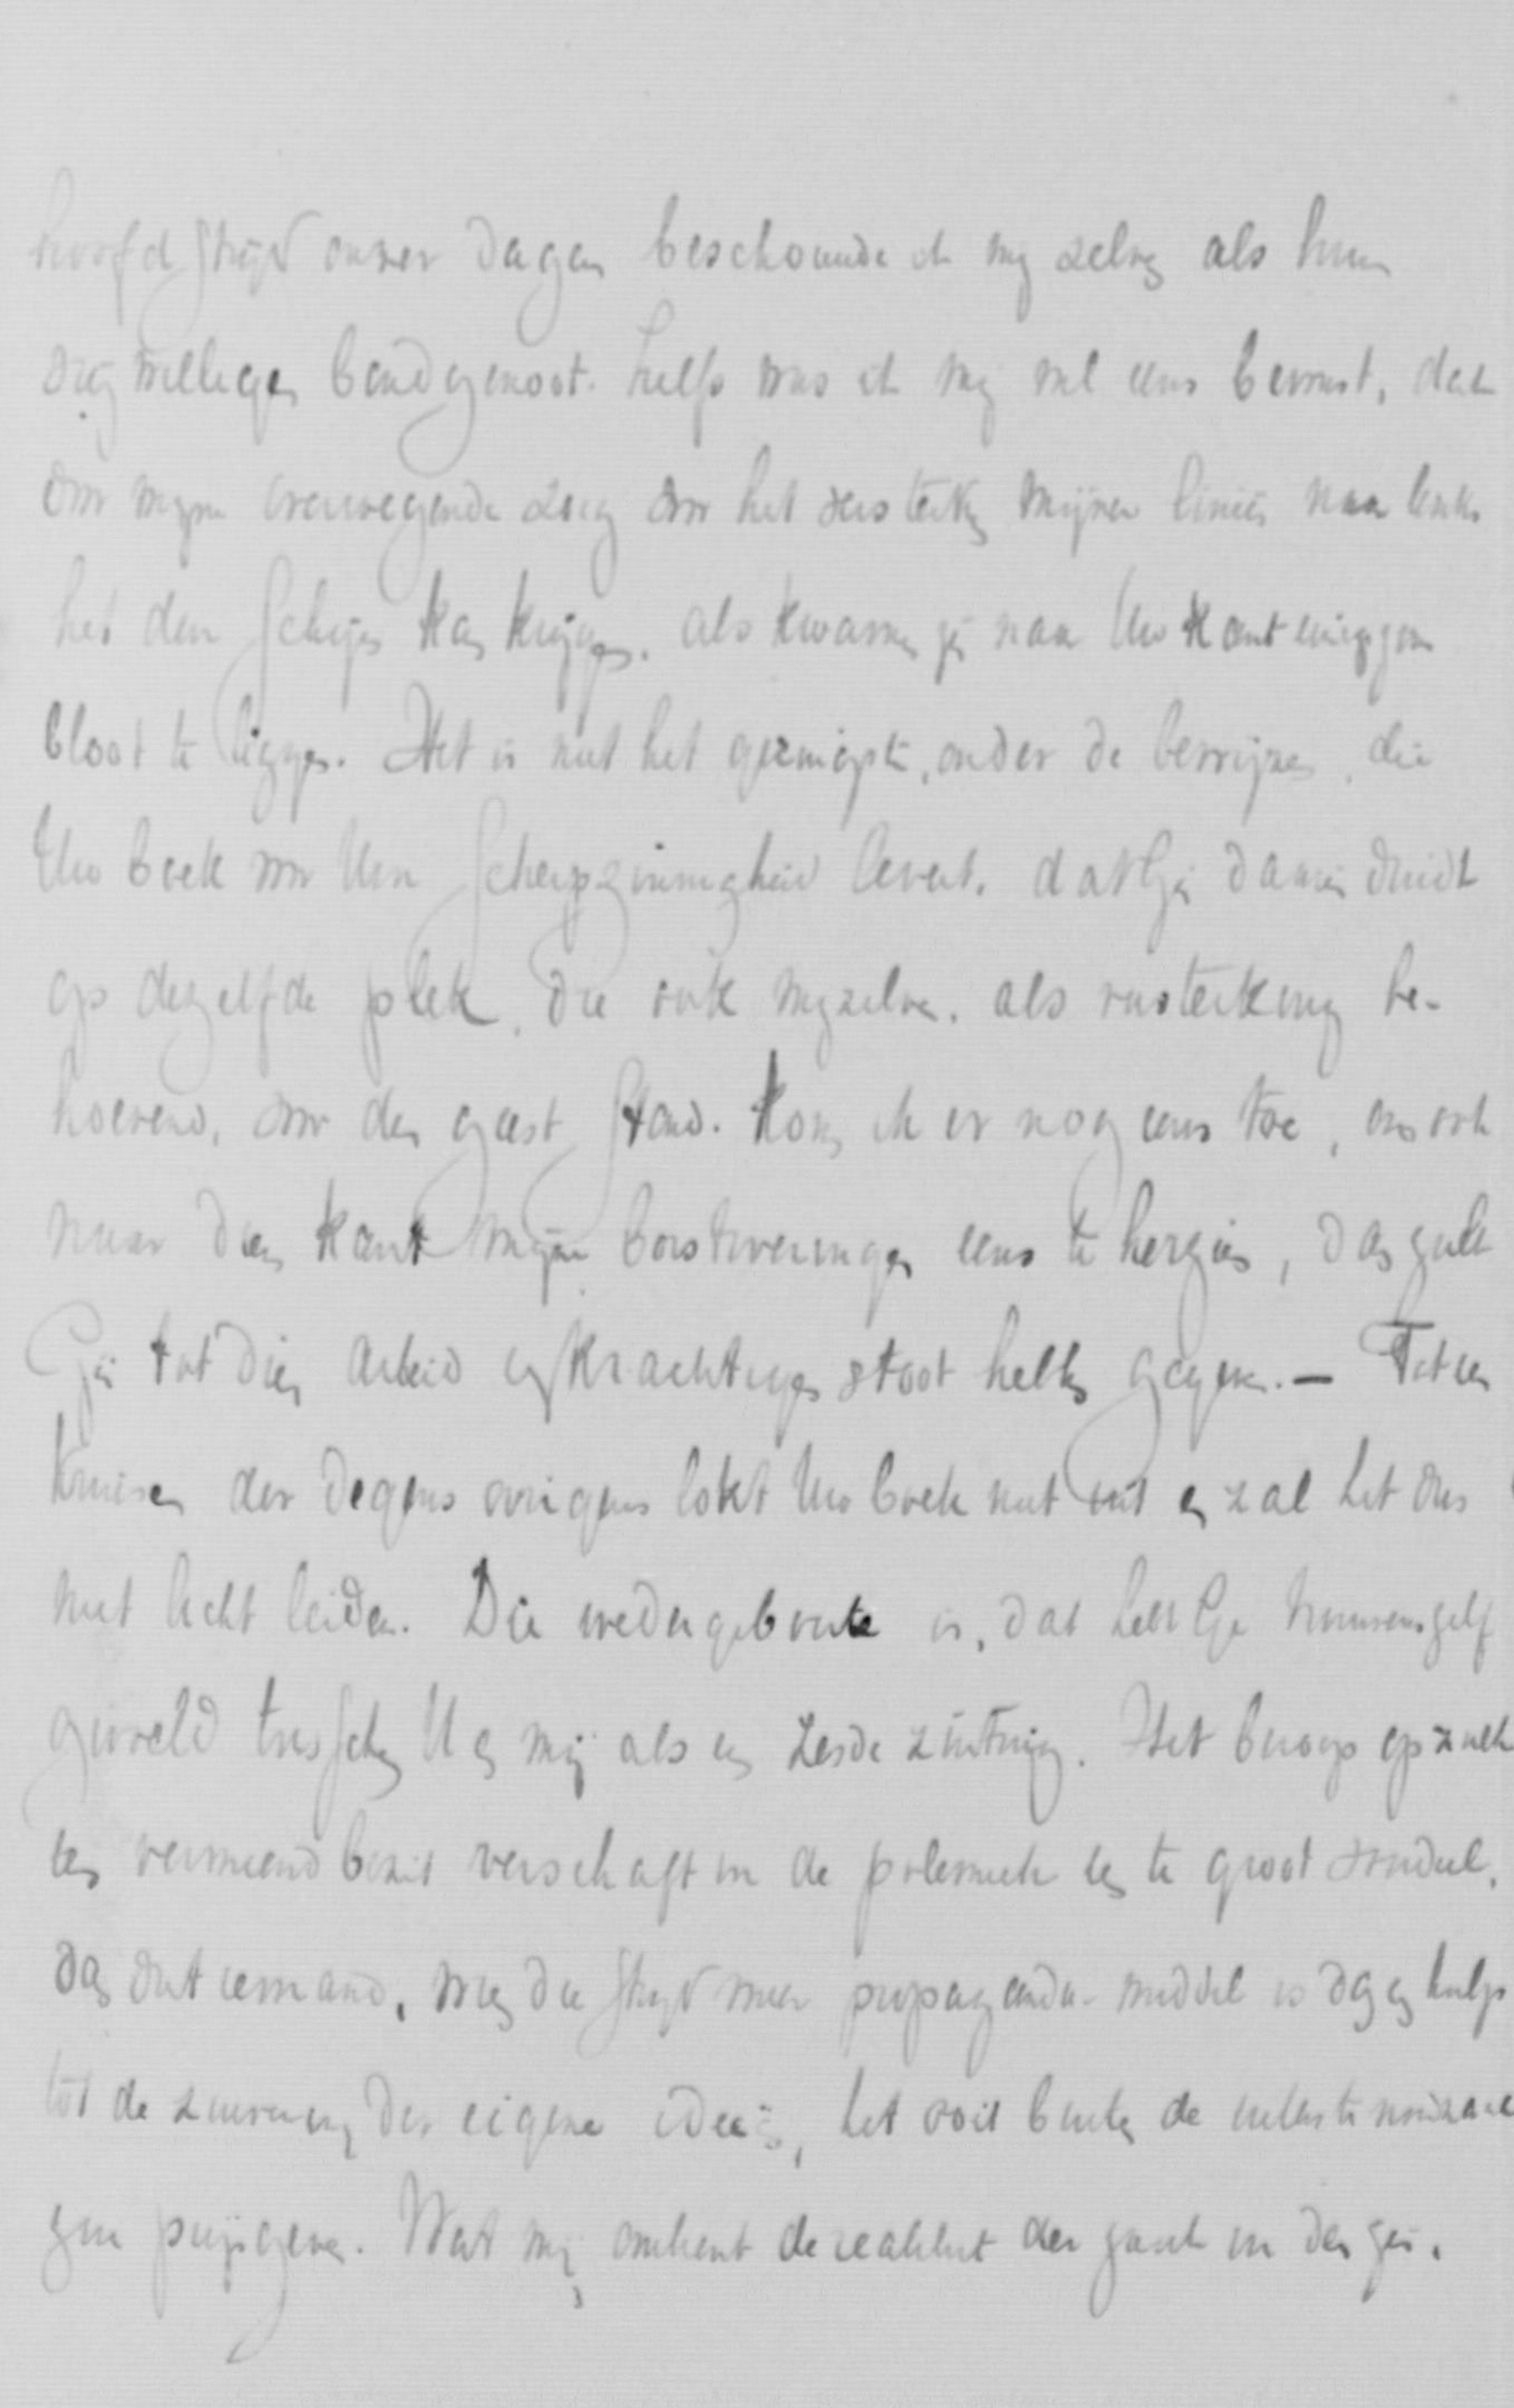 hoofdstrijd onzer dagen beschouwde ik mij zelven als hun
vrijwilligen bondgenoot. Zelfs was ik mij wel eens bewust, dat
door mijne overwegende zorg voor het versterken mijner liniën naar links
het den schijn kan krijgen, als kwamen zij naar Uw kant eenigszins
bloot te liggen. Het is niet het geringste, onder de bewijzen, die
Uw boek voor Uwe scherpzinnigheid levert, dat Gij daarin duidt
op dezelfde plek, die ook mijzelven, als versterking be-
hoevend, voor den geest stond. Kom ik er nog eens toe, om ook
naar dien kant mijne borstweringen eens te herzien, dan zult
Gij tot dien arbeid een krachtigen stoot hebben gegeven. — Tot een
kruisen der degens overigens lokt Uw boek niet uit en zal het dus
niet licht leiden. Die wedergeboorte is, dat hebt Ge
gevoeld tusschen U en mij als een zesde zintuig. Het beroep op zulk
een vermeend bezit verschaft in de polemiek een te groot voordeel,
dan dat iemand, wien die strijd meer propaganda-middel is dan een hulp
tot de zuivering der eigene ideën, het ooit buiten de
gen prijsgeven. Wat mij omtrent de realiteit der zonde in den zin,